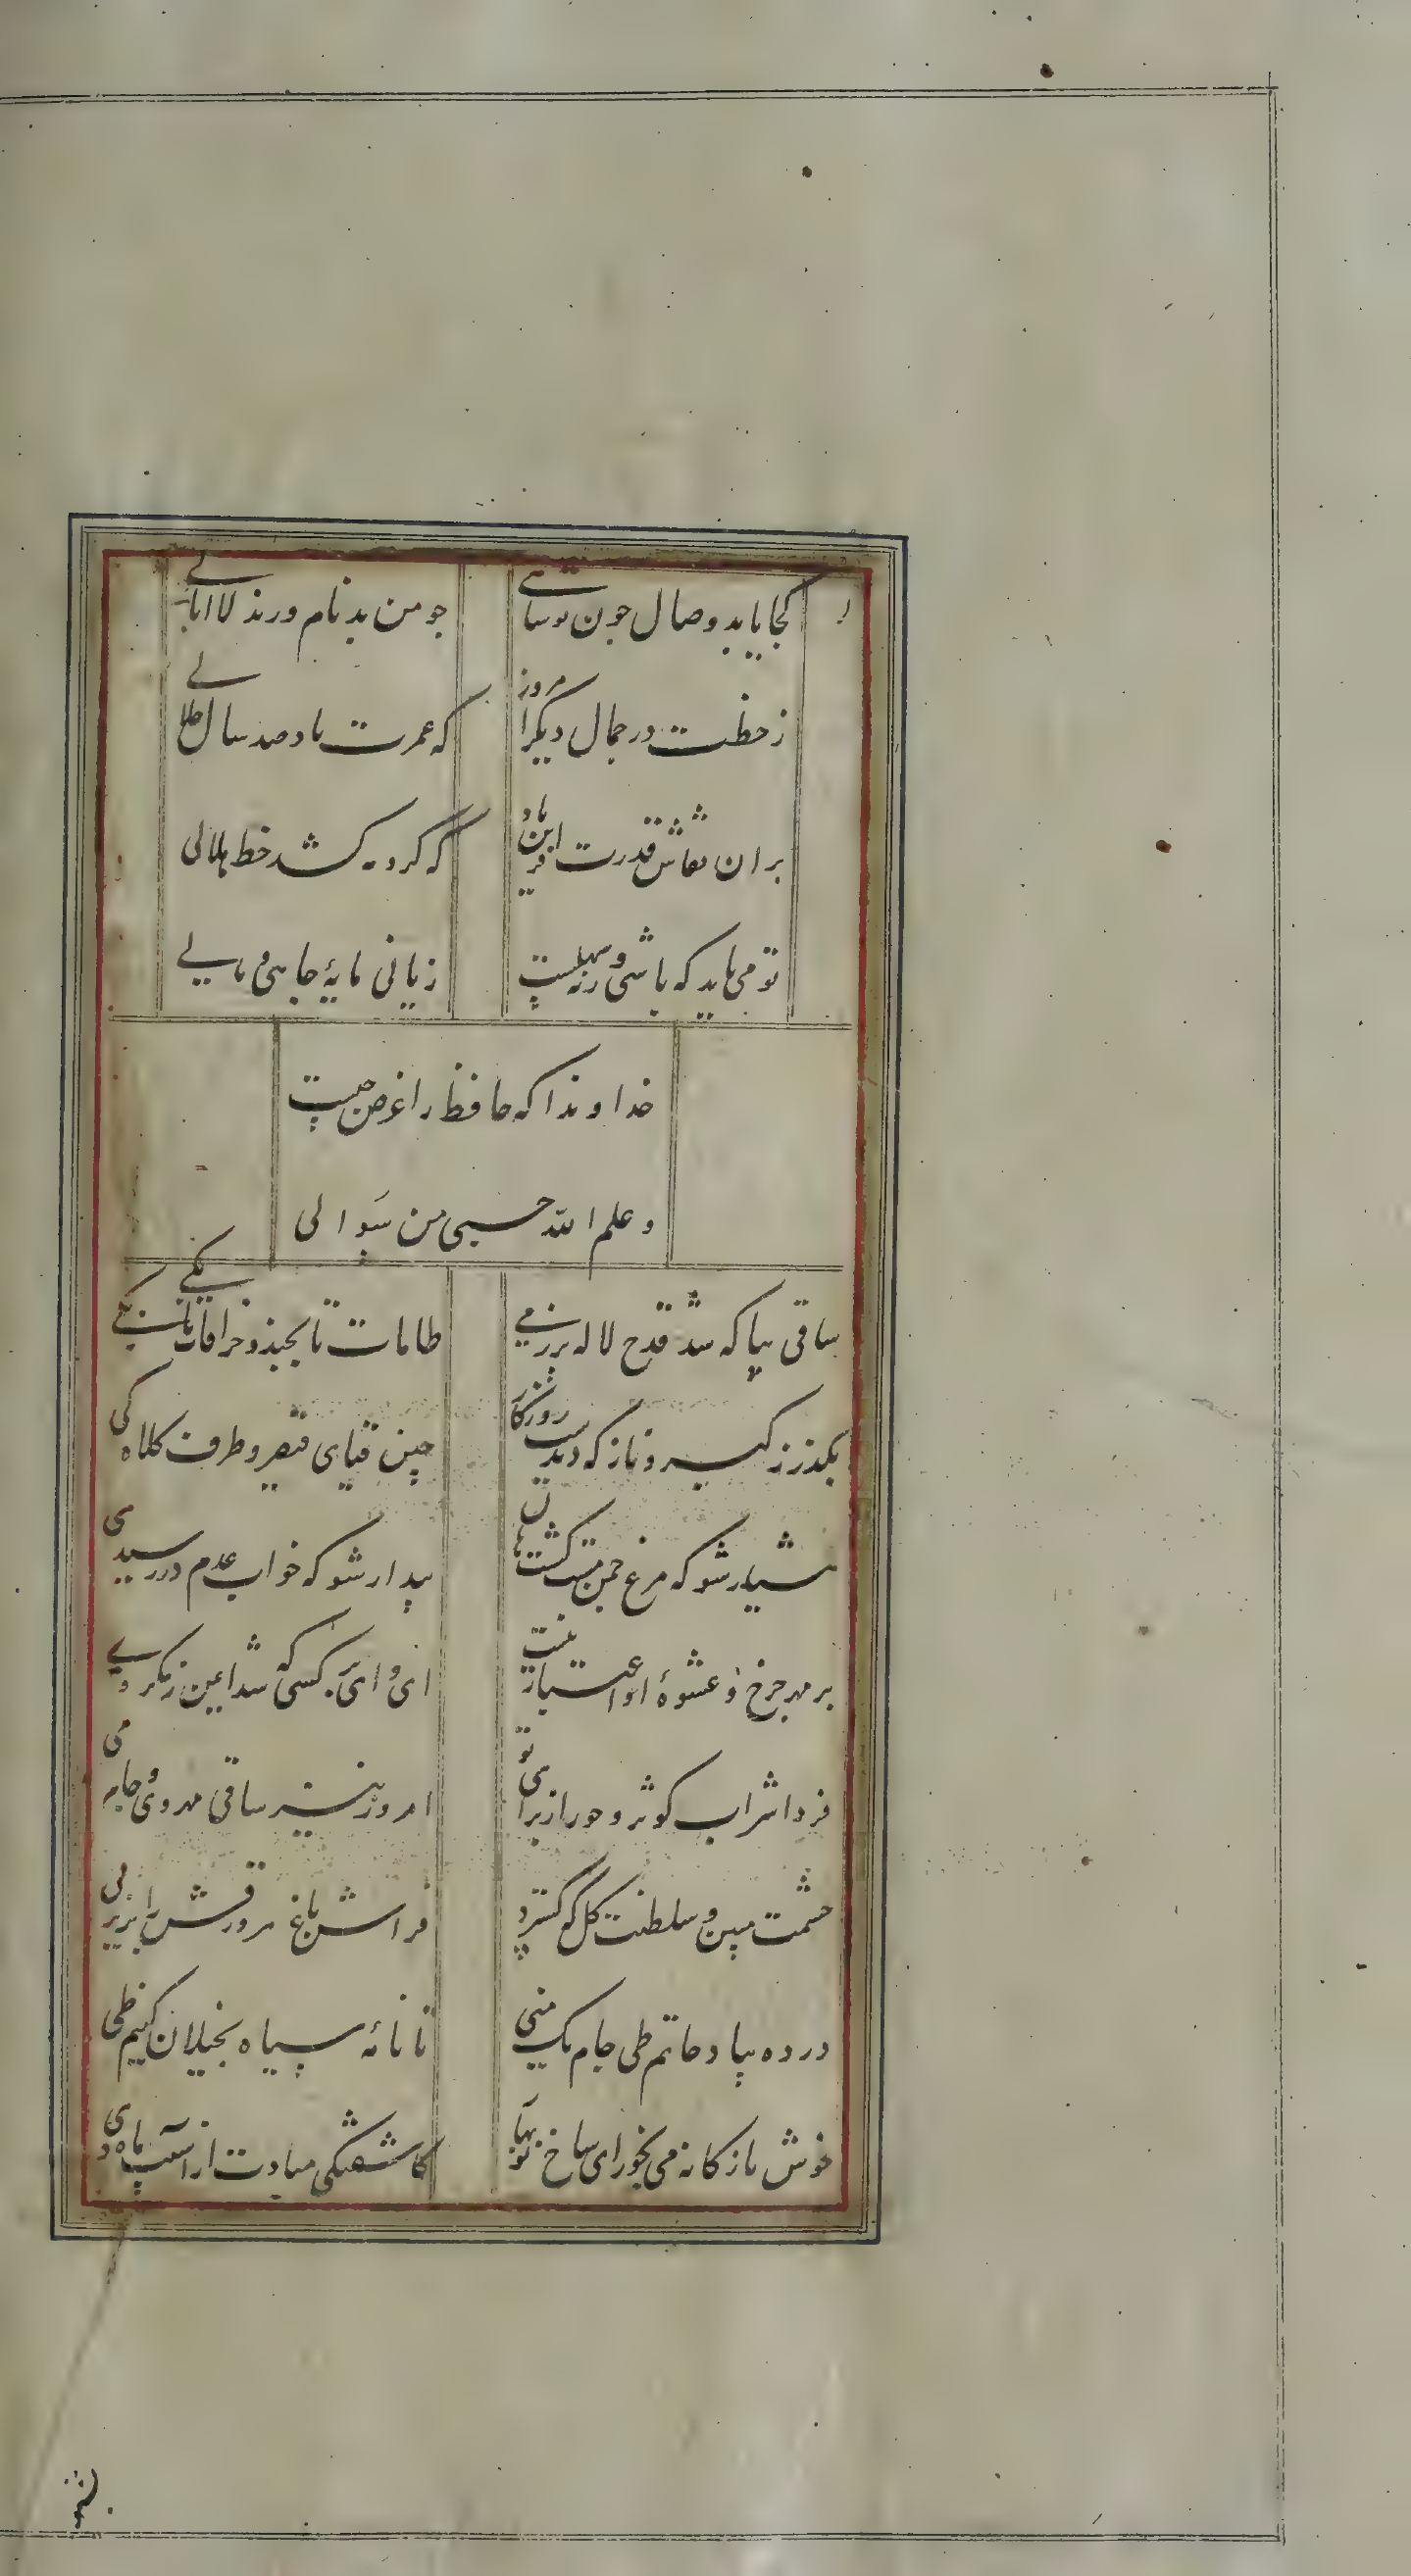 کجا یابد وصال جون تو شاهی
جو من بدنام و رند لاابالے
ز خطت در جمال دیگر امروز
که عمرت باد صد سال جلالے
بر ان نقاش قدرت افرین باد
که کرد مه کشد خط هلالی
تو می باید که باشی و رنه سهلست
زیانی مایهٔ جاهی و مالے
خداوندا که حافظ را غرض جیست
و علم الله حسبی من سوالی
ساقی بیا که شد قدح لاله پر ز مے
طامات تا بجند و خرافات تا بکے
بکذر ز کبر و ناز که دیدست روزکار
جین قبای قیصر و طرف کلاه کی
هشیار شو که مرغ جمن مست کشت هان
بیدار شو که خواب عدم در رسید هی
بر مهر جرخ و عشوهٔ او اعتبار نیست
ای وای بر کسی که شد ایمن ز مکر وے
فردا شراب کوثر و حور از برای تو
امروز نیز ساقی مهروی و جام می
حشمت مبین و سلطنت کل که کسترد
فراش باغ هر ورقش را بزیر پی
در ده بیاد حاتم طی جام یک منی
تا نامهٔ سیاه بخیلان کنیم طی
خوش نازکانه می بخور ای شاخ نوبهار
کاشفتکی مبادت از آسیب باد دی